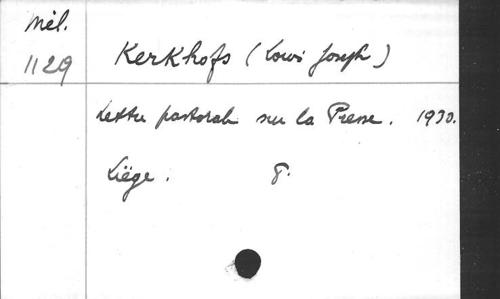 Mél.
1129
Kerkhofs (Louis Joseph)
Lettre pastorale sur la Presse. 1930.
Liège. 8.